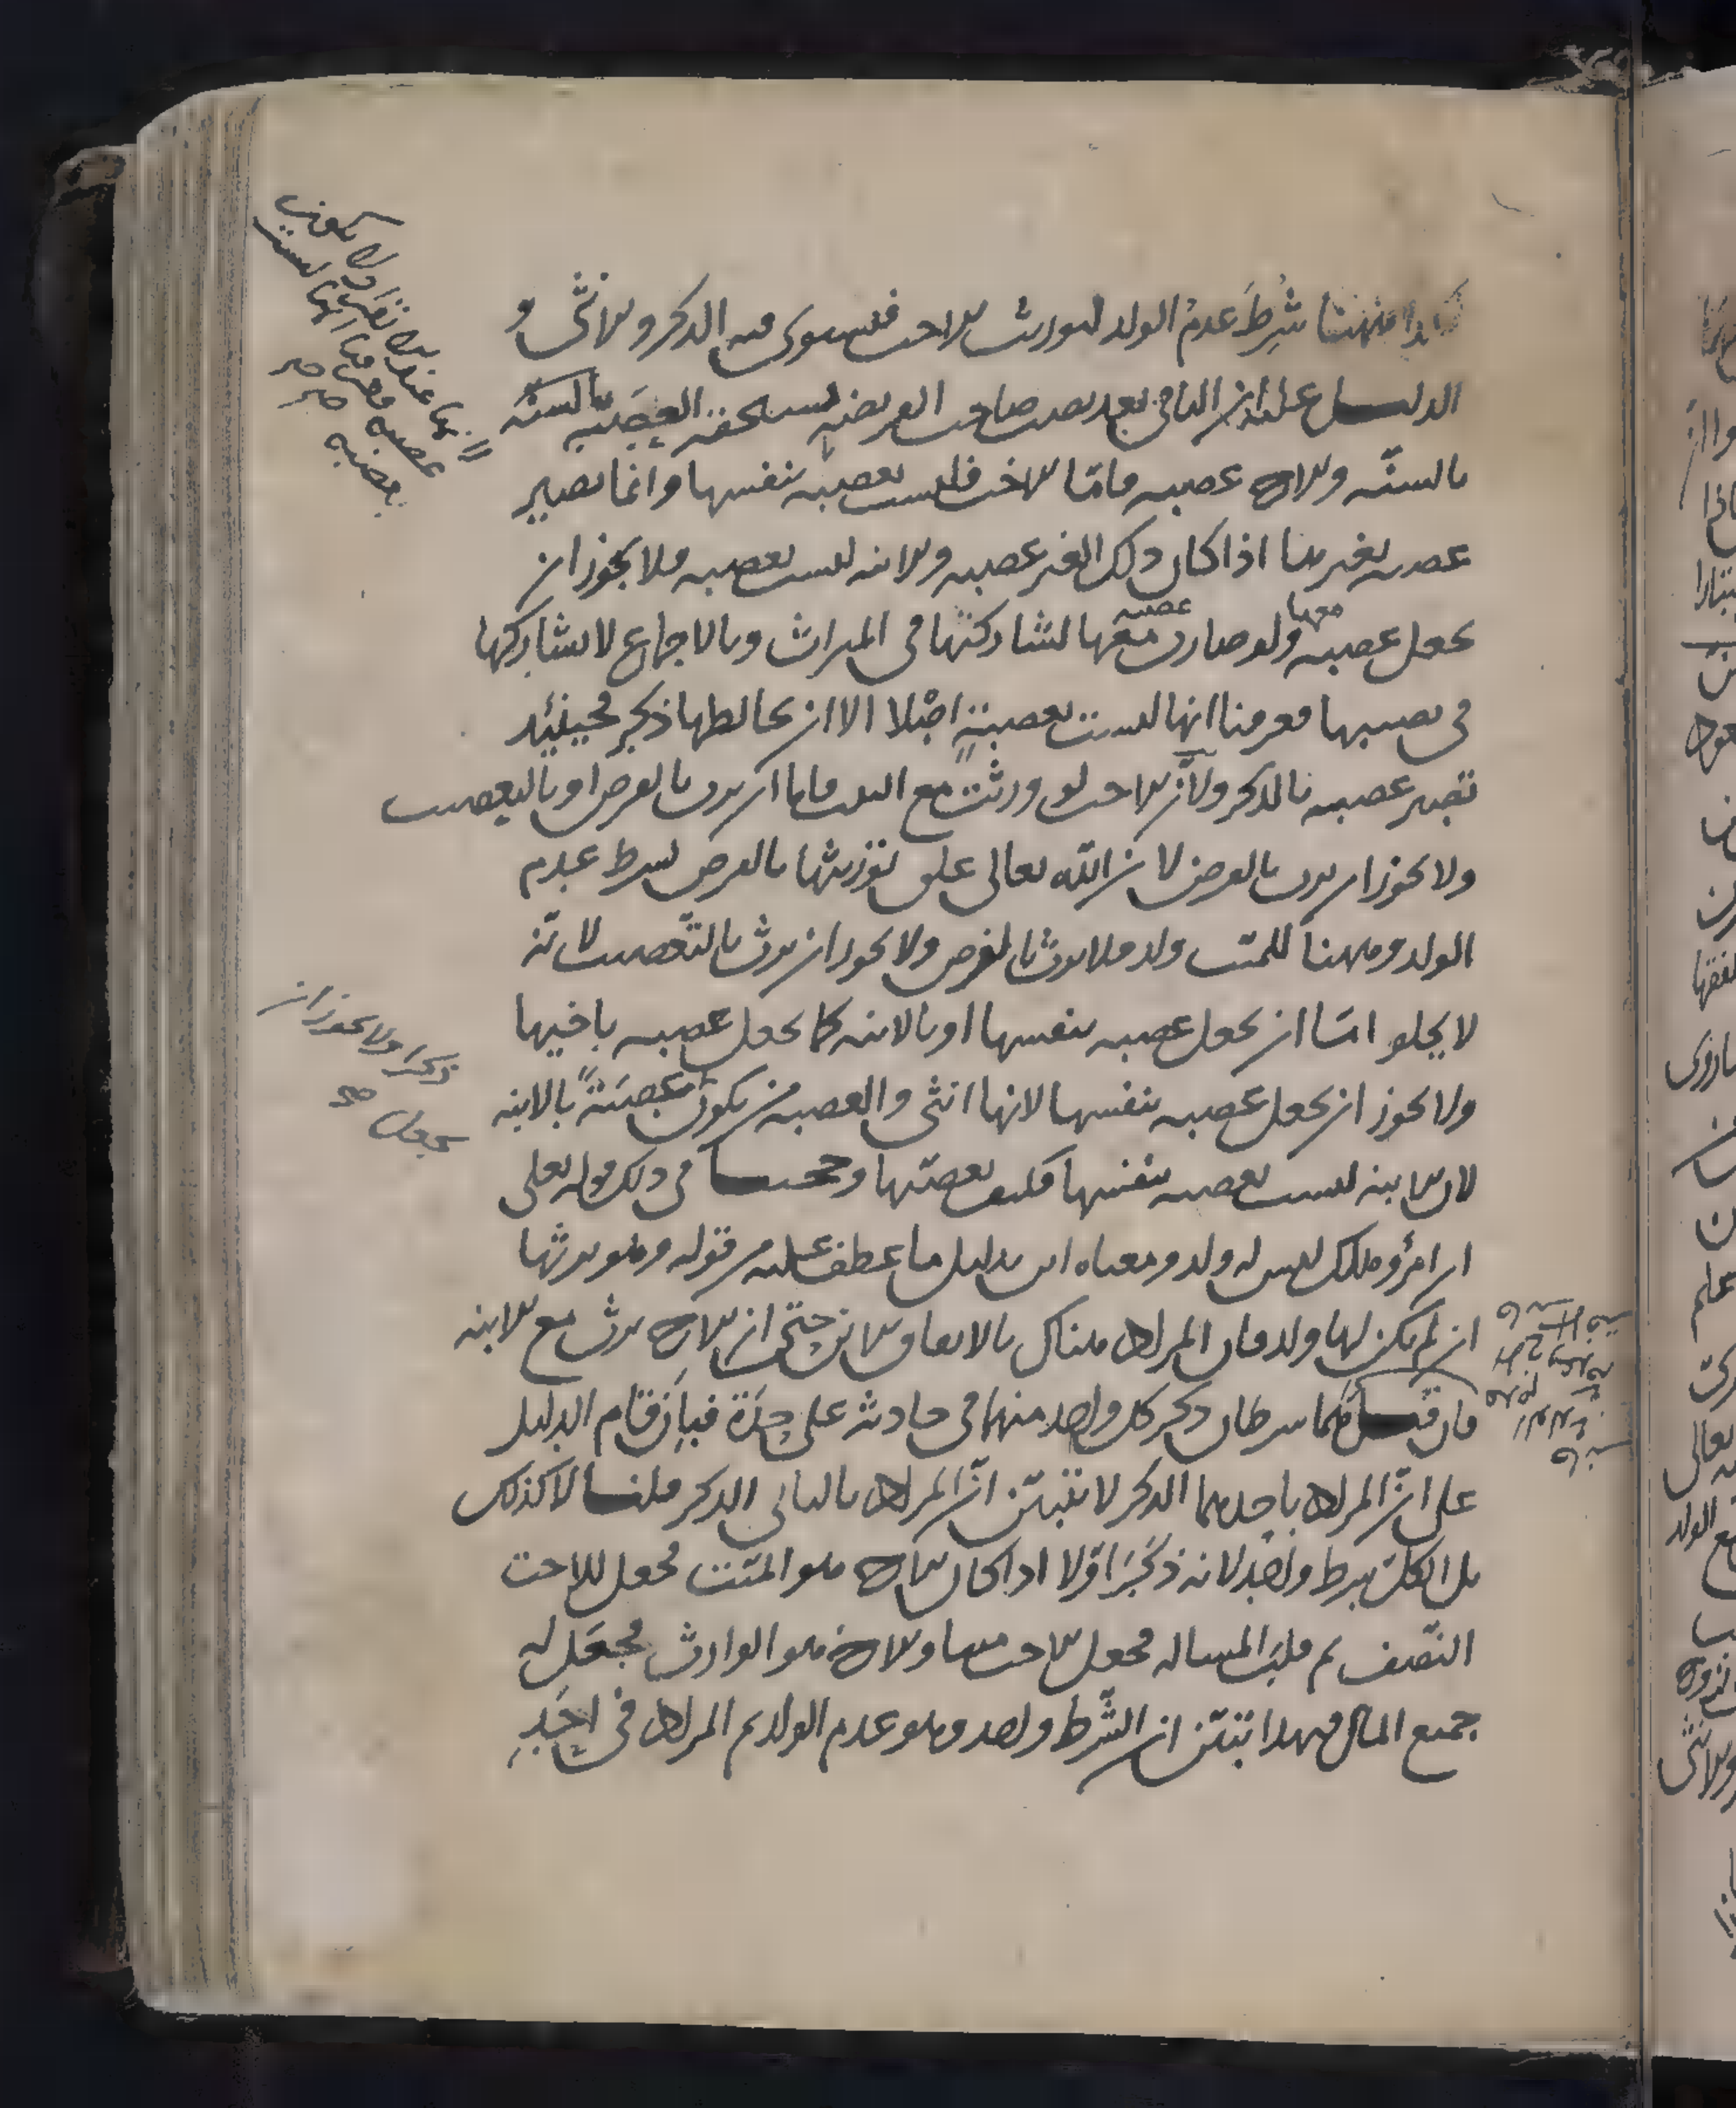 هاهنا شرط عدم الولد لتوريث الاخت فيستوى فيه الذكر والانثى و
الدليل عليه ان الباقى بعد نصيب صاحب الفريضة يستحقه العصبة بالسنة
بالسنّة والاخ عصبه فامّا الاخت فليست بعصبه بنفسها وانما تصير
عصبه بغيرها اذا كان ذلك الغير عصبه والابنه ليست بعصبه فلا يجوز ان
تجعل عصبه معها ولو صارت عصبه معها لشاركتها فى الميراث وبالاجماع لا تشاركها
فى نصيبها فعرفنا انها ليست بعصبة اصلا الا ان يخالطها ذكر فحينئذ
تصير عصبه بالذكر ولان الاخت لو ورثت مع البنت فاما ان ترث بالفرض او بالتعصيب
ولا يجوز ان ترث بالفرض لان الله تعالى علق توريثها بالفرض بشرط عدم
الولد وههنا للميت ولد فلا ترث بالفرض ولا يجوز ان ترث بالتعصيب لانه
لا يخلو امّا ان تجعل عصبه بنفسها او بالابنه كما تجعل عصبه باخيها
ولا يجوز ان تجعل عصبه بنفسها لانها انثى والعصبه من يكون عصبة بالابنه
لان الابنه ليست بعصبه بنفسها فكيف تعصبها وحجتنا فى ذلك قوله تعلى
ان امرؤ هلك ليس له ولد ومعناه ابن بدليل ما عطف عليه من قوله وهو يرثها
ان لم يكن لها ولد فان المراد هناك بالاتفاق الابن حتى ان الاخ يرث مع الابنه
فان قيل هما شرطان ذكر كل واحد منهما فى حادثة على حِدَة فبأن قام الدليل
على انّ المراد باحدهما الذكر لا يتبيّن انّ المراد بالثانى الذكر قلنا لا كذلك
بل الكل شرط واحد لانه ذكر اوّلا اذا كان الاخ هو الميّت فجعل للاخت
النّصف ثم قلب المساله فجعل الاخت ميتا والاخ هو الوارث فجعل له
جميع المال فبهذا يتبيّن ان الشّرط واحد وهو عدم الولد ثم المراد فى احد
ذكرا ولا يجوز ان
تجعل صح